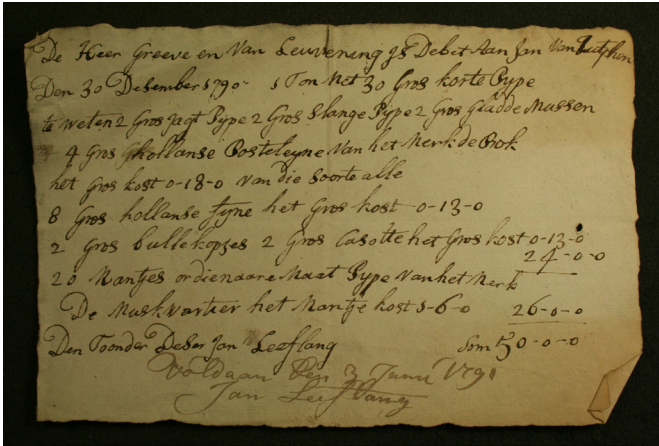 De Heer Greeve en Van Leuvening is Debet Aan Jan Van Zutphen
Den 30 Desember 1790 1 Ton Met 30 Gros korte Pype
te weten 2 Gros Jagt Pype 2 Gros Slange Pype 2 Gros Gladde Mussen
4 Gros Ghollanse Posteleyne Van het Merk de Rok
het Gros kost 0-18-0 van die Soorte alle
8 Gros hollanse fyne het Gros kost 0-13-0
2 Gros bullekopjes 2 Gros Casotte het Gros kost 0-13-0
24-0-0
20 Mantjes ordienaare Maat Pype Van het Merk
De Muskvartier het Mantje kost 1-6-0 26-0-0
Den Toonder Deser Jan Leeflang Som 50-0-0
Voldaan Den 3 Juni 1791
Jan Leeflang